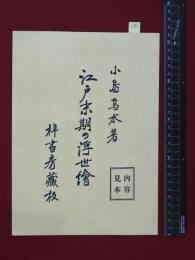 小島烏水著
江戸末期の浮世繪
梓書房藏板
内容
見本